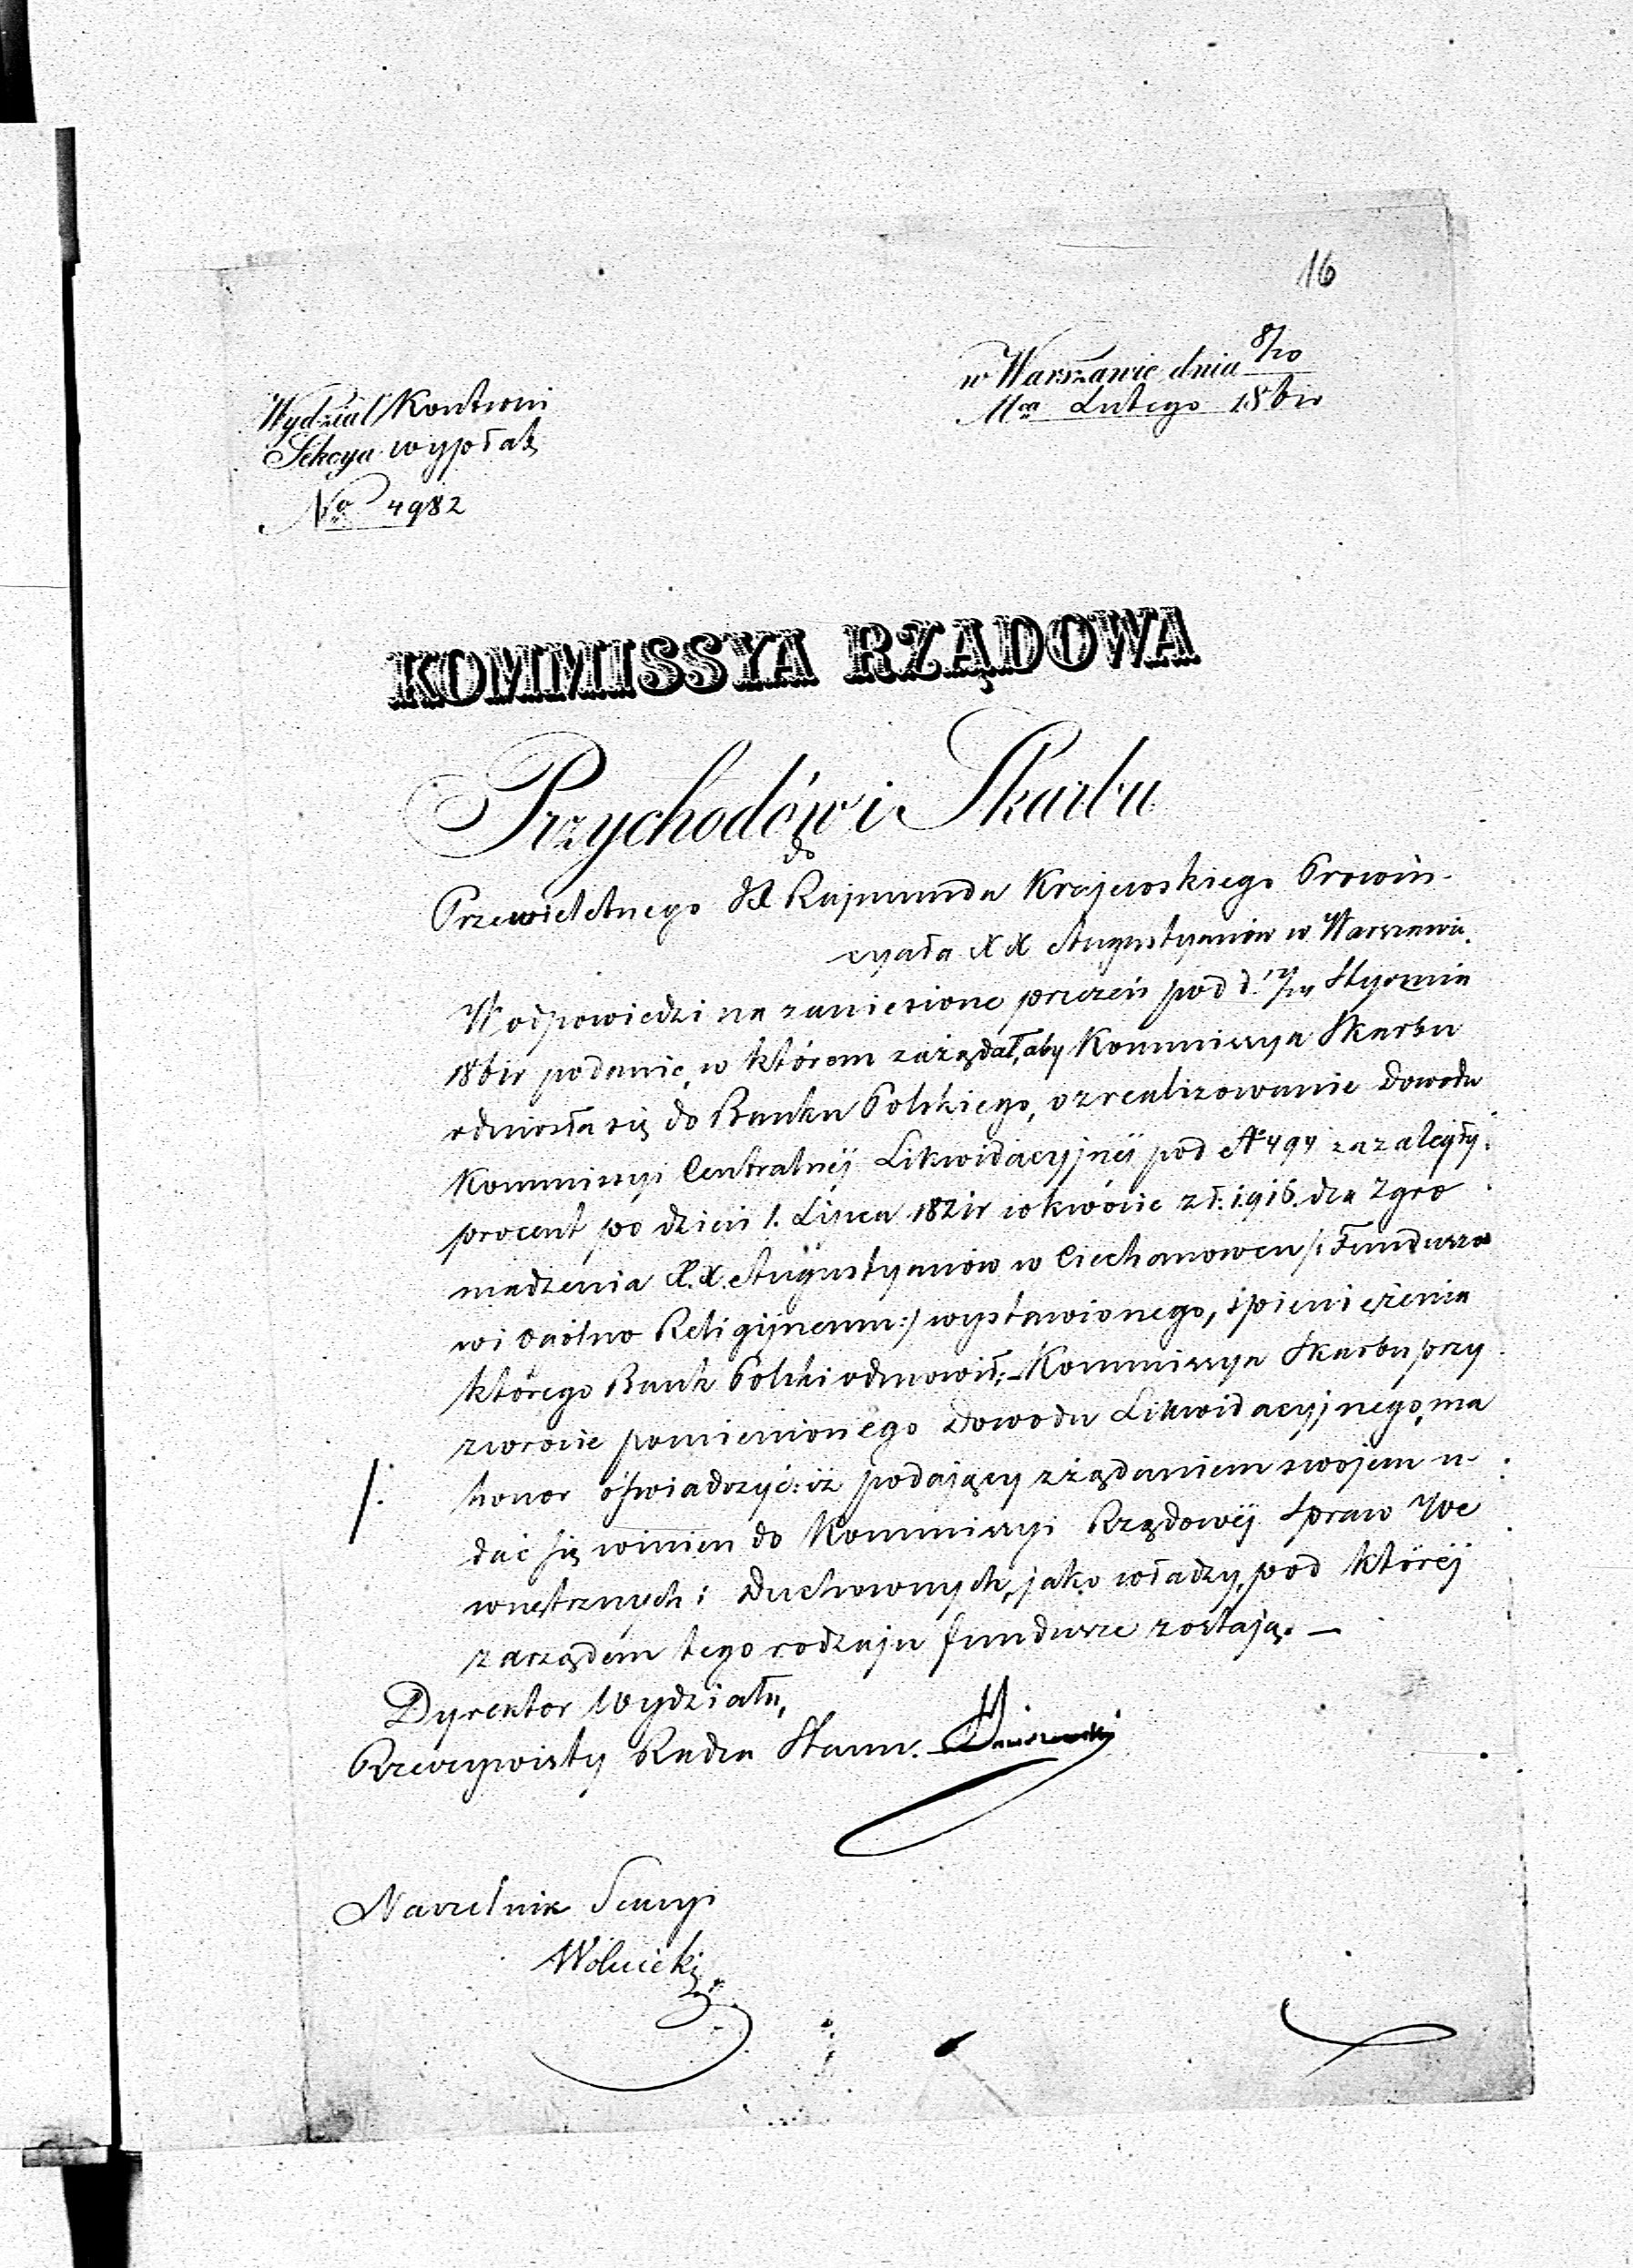 16
w Warszawie dnia 8/20
Mca Lutego 186 r
Wydział Kontroli
Sekcya wypłat
No 4982
KOMMISSYA RZĄDOWA
Przychodów i Skarbu
do
Przewielebnego X Rajmunda Krajewskiego Prowin-
cyała XX Augustyanów w Warszawie.
W odpowiedzi na zaniesione przezeń pod d. Stycznia
186 r podanie, w którem zażądał, aby Kommissya Skarbu
odniosła się do Banku Polskiego, o zrealizowanie dowodu
Kommissyi Centralnéj Likwidacyjnéj pod No 494 za zaległy
procent po dzień 1. Lipca 1821r w kwocie zł: 1.916. dla Zgro
madzenia X.X. Augustyanów w Ciechanowcu /: Fundusza
wi Ogólno Religijnemu :/ wystawionego, spieniężenia
którego Bank Polski odmówił; – Kommissya Skarbu przy
zwrocie pomienionego Dowodu Likwidacyjnego, ma
/. honor oświadczyć: iż podający z żądaniem swojem u-
dać się winien do Kommissyi Rządowéj Spraw We
wnętrznych i Duchownych, jako władzy, pod któréj
zarządem tego rodzaju fundusze zostają. –
Dyrektor Wydziału,
Rzeczywisty Radca Stanu.
Naczelnik Sekcyi
Wolnicki